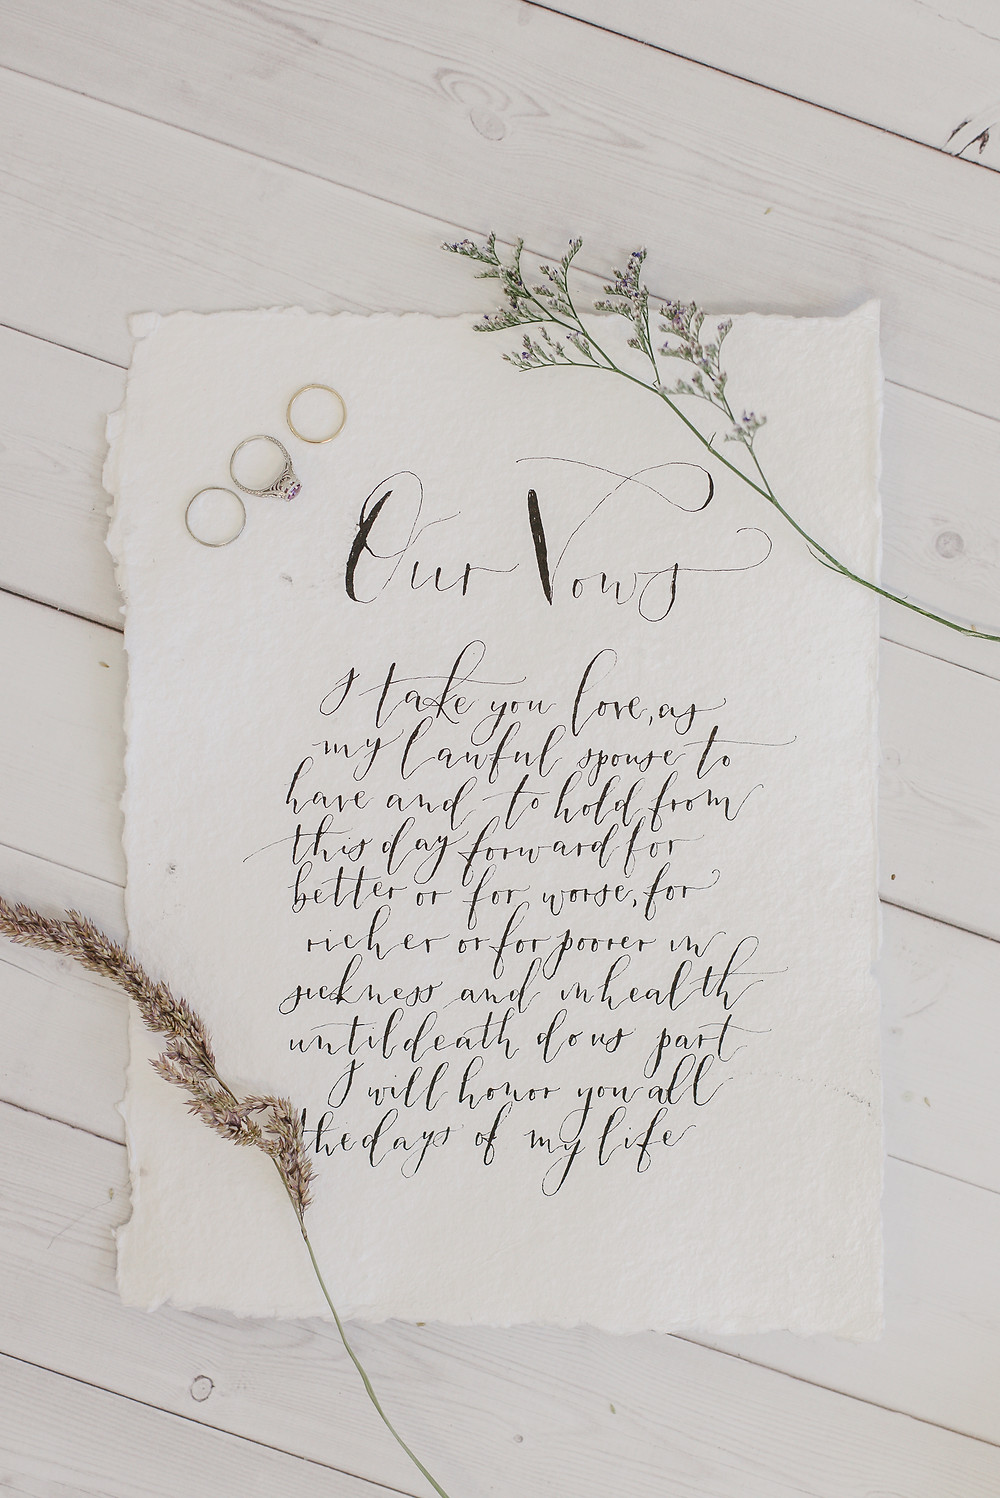 Our Vows
I take you love, as
my lawful spouse to
have and to hold from
this day forward for
better or for worse, for
richer or for poorer in
sickness and in health
until death do us part
I will honor you all
the days of my life